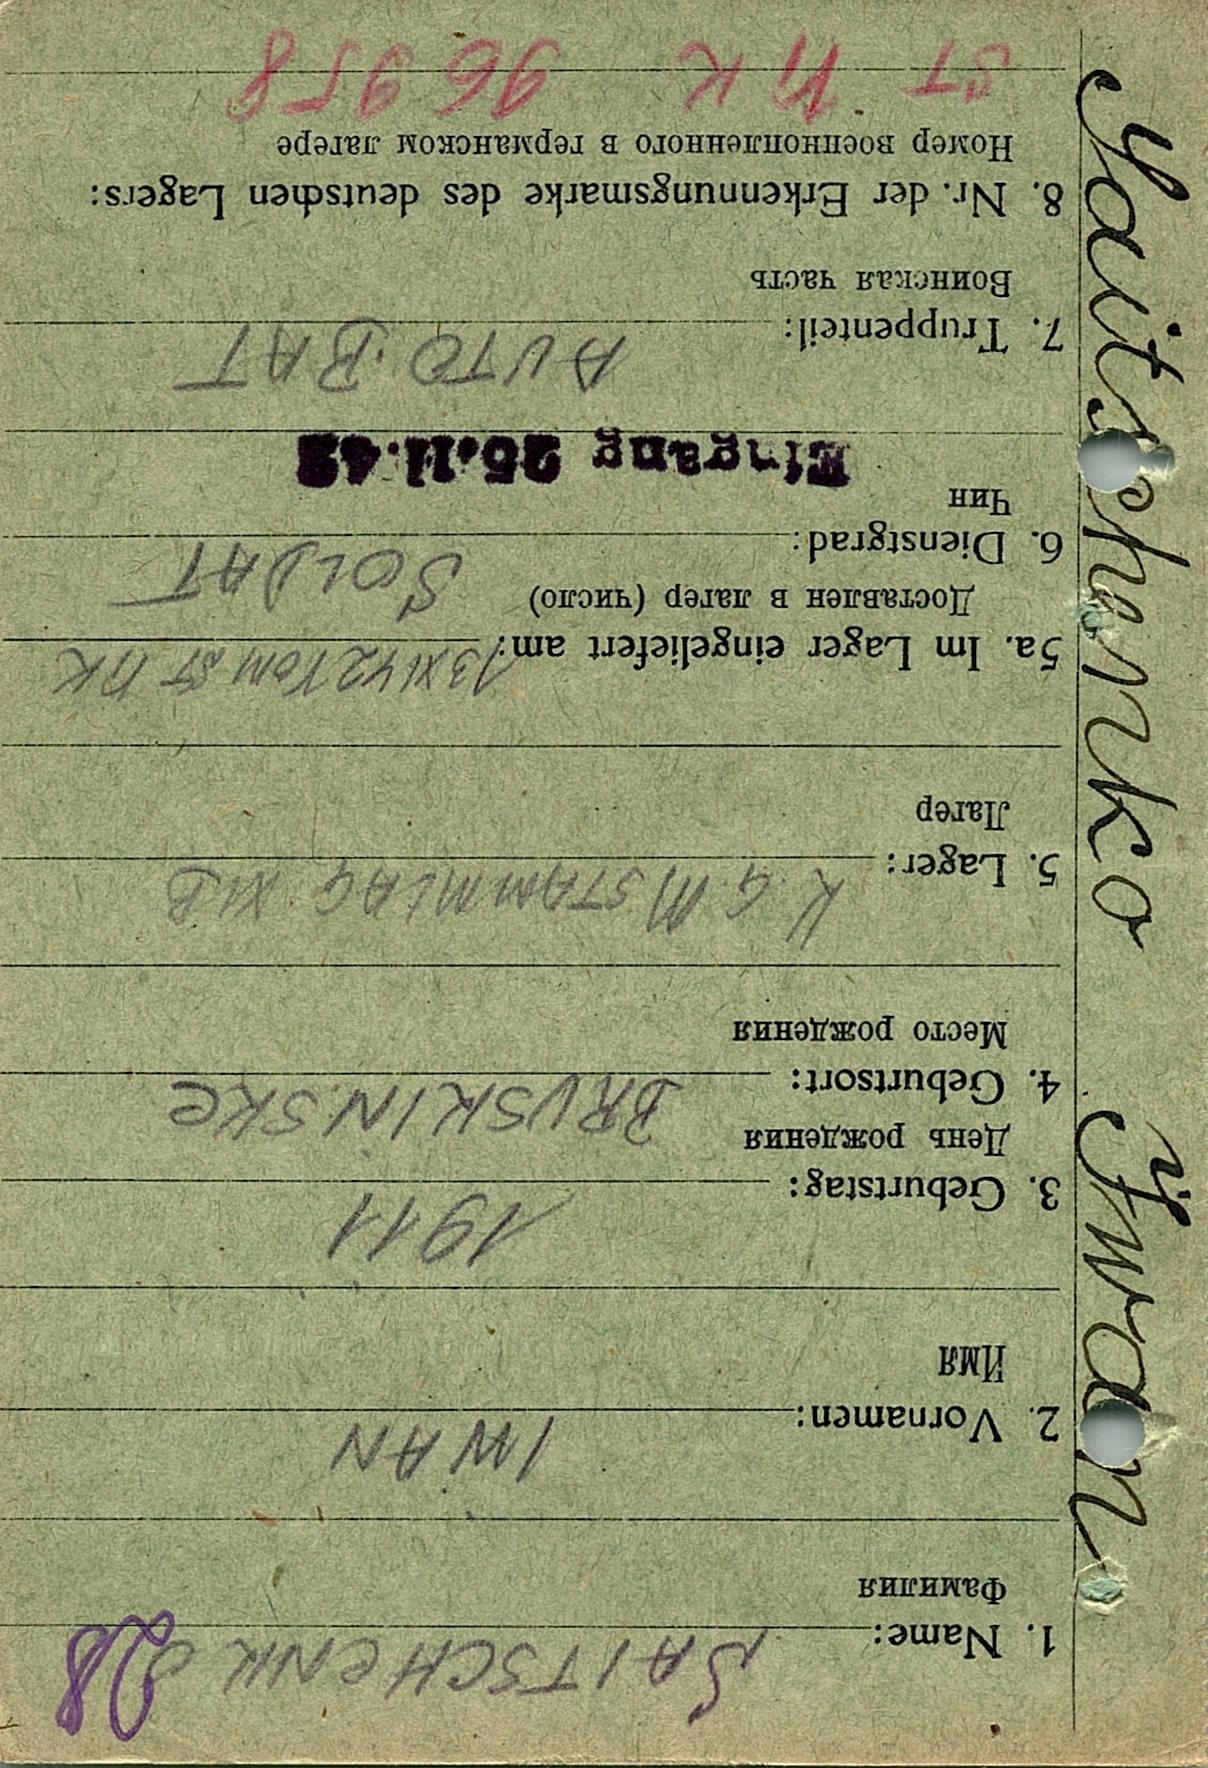 1. Name: SAITSCHENKO 28
Фамилия
2. Vornamen: IWAN
Имя
3. Geburtstag: 1911
День рождения
4. Geburtsort: BRUSKINSKE
Место рождения
5. Lager: K.G.M STAMMLAG XI B
Лагер
5a. Im Lager eingeliefert am: 13 XI 42 Vom ST II K
Доставлен в лагер (число)
6. Dienstgrad: SOLDAT
Чин
Eingang 25.11.42
7. Truppenteil: AUTO.BAT
Воинская часть
8. Nr. der Erkennungsmarke des deutschen Lagers:
Номер военнопленного в германском лагере
ST II K 96958
Saitschenko Jwan